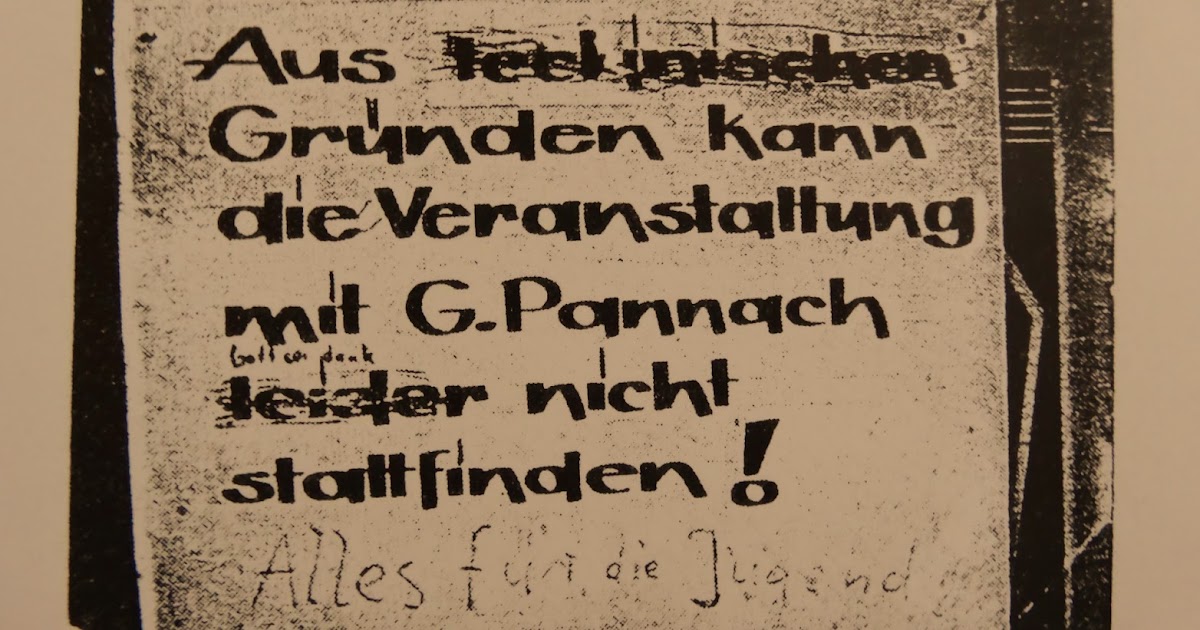 Aus technischen
Gründen kann
die Veranstaltung
mit G. Pannach
Gott sei dank
leider nicht
stattfinden!
Alles für die Jugend